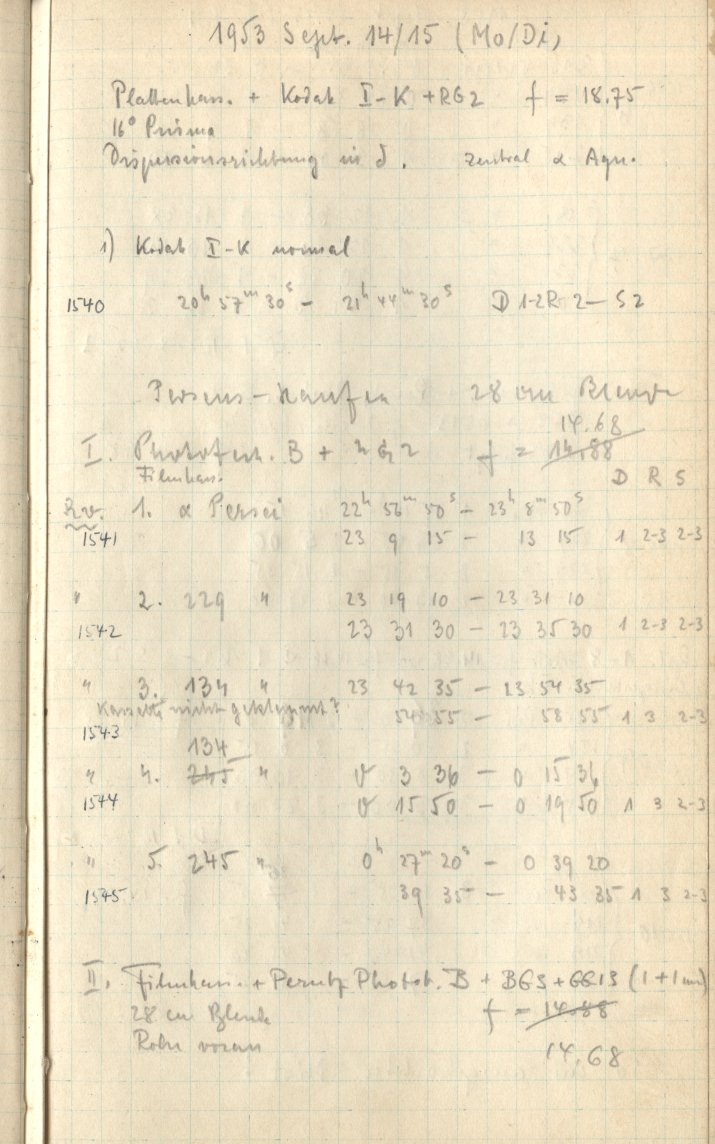 1953 Sept. 14/15 (Mo/Di)
Plattenkass. + Kodak I-K + RG2 f = 18.75
16° Prisma
Dispersionsrichtung in δ. Zentral α Aqu.
1) Kodak I-K normal
1540 20h 57m 30s – 21h 44m 30s D 1-2 R 2– S 2
Perseus-Haufen 28 cm Blende
14.68
I. Photot. B + RG2 f = 14.88
Filmkass. D R S
1. α Persei 22h 56m 50s – 23h 8m 50s
1541 23 9 15 – 13 15 1 2-3 2-3
" 2. 229 " 23 19 10 – 23 31 10
1542 23 31 30 – 23 35 30 1 2-3 2-3
" 3. 134 " 23 42 35 – 23 54 35
Kassette nicht geklemmt? 54 55 – 58 55 1 3 2-3
1543
134
" 4. 245 " 0 3 36 – 0 15 36
1544 0 15 50 – 0 19 50 1 3 2-3
" 5. 245 " 0h 27m 20s – 0 39 20
1545 39 35 – 43 35 1 3 2-3
II. Filmkass. + Perutz Photot. B + BG3 + GG13 (1+1mm)
28 cm Blende f = 14.88
Rohr voran 14.68